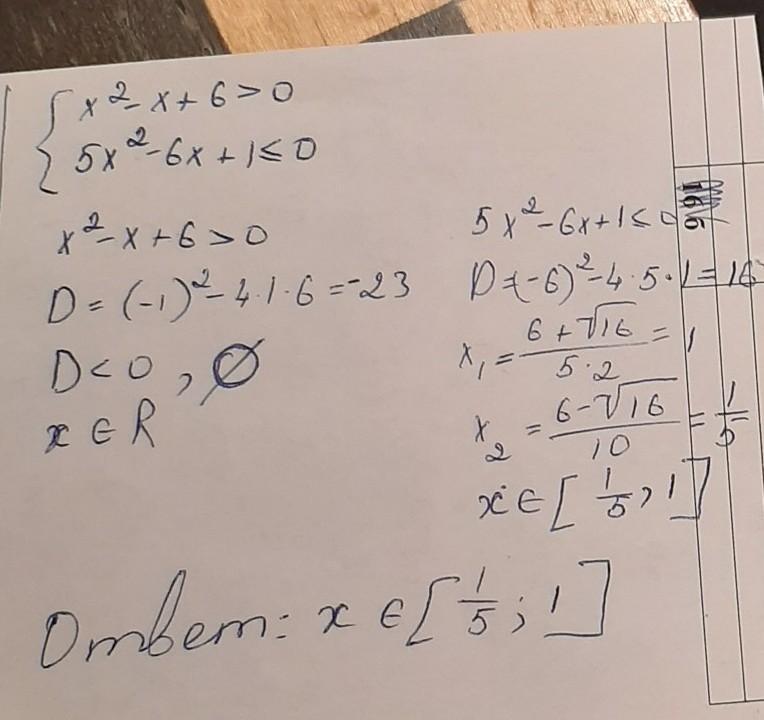 x²-x+6>0
5x²-6x+1≤0
x²-x+6>0
D=(-1)²-4·1·6=-23
D<0, ∅
x∈R
5x²-6x+1≤0
D=(-6)²-4·5·1=16
x₁=(6+√16)/(5·2)=1
x₂=(6-√16)/10=1/5
x∈[1/5, 1]
Ответ: x∈[1/5; 1]